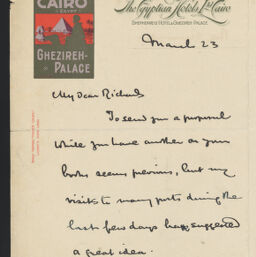 CAIRO
EGYPT
GHEZIREH-
PALACE
The Egyptian Hotels Ltd. Cairo
SHEPHEARD'S HOTEL & GHEZIREH PALACE
March 23
My Dear Richards
To send you a proposal
while you have another of your
books seems previous, but my
visits to many parts during the
last few days have suggested
a great idea.